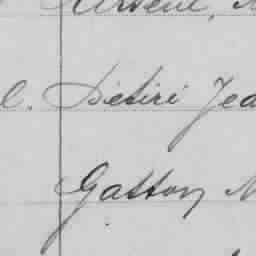 Arsène, M
C. Désiré Jea
Gaston M